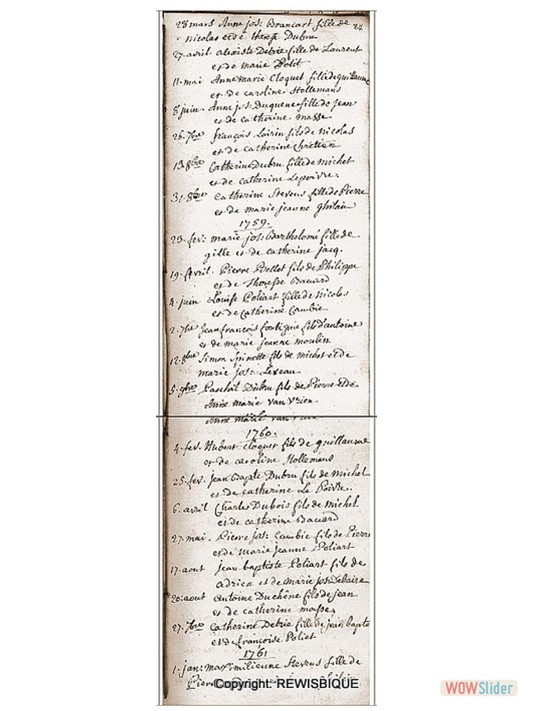 28 mars Anne jos: Brancart fille de 24
Nicolas et de therese Dubru
27. avril Debrie fille de Laurent
et de marie Polit
11. mai Anne marie Cloquet fille de guillaume
et de caroline Hollemans
8 juin. Anne jos: Duquene fille de jean
et de catherine masse
26. 7bre françois Loirin fils de nicolas
et de catherine chretien
13. 8bre Catherine Dubru fille de michel
et de catherine Lepoivre.
31. 8bre Catherine Stevens fille de Pierre
et de marie jeanne Ghilain
1759.
23. fev: marie jos: Bartholomé fille de
gille et de catherine jacq.
19. avril. Pierre Pollet fils de Philippe
et de Therese Bauard
4. juin Louise Poliart fille de Nicolas
et de Catherine Cambie
2. 7bre jean françois fontigni fils d'antoine
et de marie jeanne moulin
12. 8bre Simon Spinette fils de michel et de
marie jos:
5. 9bre Paschal Dubru fils de Pierre et de
Anne marie van
Anne marie van
1760.
4. fev. Hubert cloquet fils de guillaume
et de caroline Hollemans
25. fev. jean bapte Dubru fils de michel
et de catherine Le Poivre.
6. avril Charles Dubois fils de michel
et de catherine Bauard
27. mai. Pierre jos: Cambie fils de Pierre
et de marie jeanne Poliart
17. aout jean baptiste Poliart fils de
adrien et de marie jos: Delaire
20: aout Antoine Duchêne fils de jean
et de catherine masse
27. 7bre Catherine Debrie fille de jean bapte
et de françoise Poliet
1761
1. jan: maximilienne Stevens fille de
Pierre
Copyright: REWISBIQUE
WOWSlider